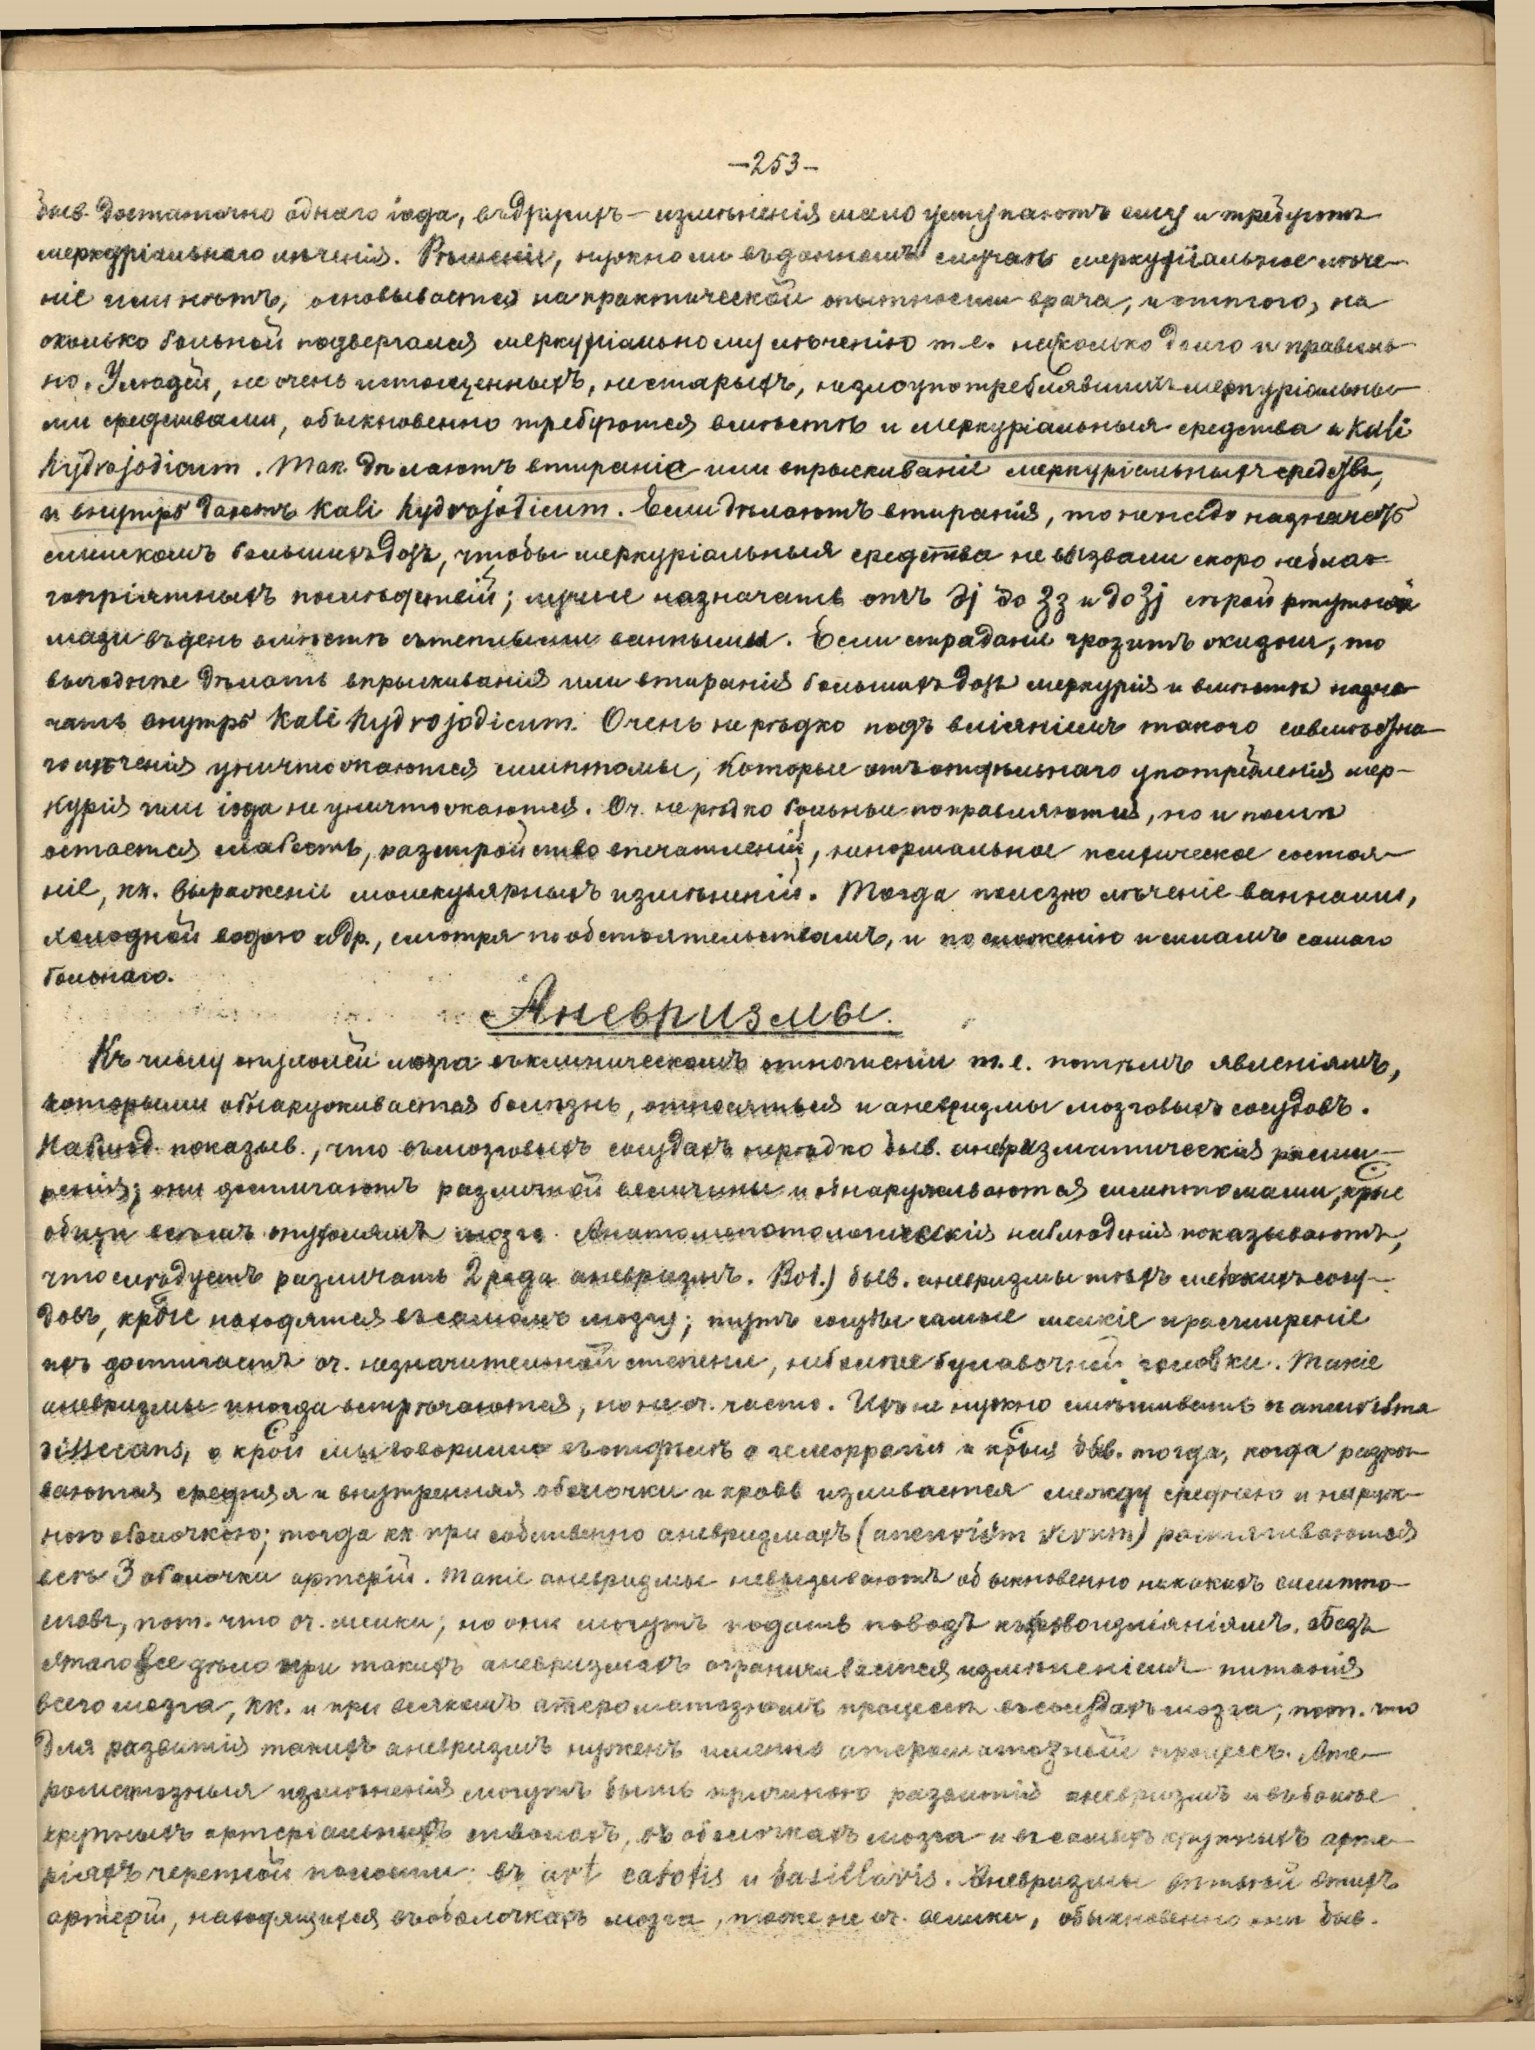 —253—
быв. достаточно однаго іода, въ другихъ — измѣненія мало уступаютъ ему и требуютъ
меркуріальнаго лѣченія. Рѣшеніе, нужно ли въ данномъ случаѣ меркуріальное лѣче-
ніе или нѣтъ, основывается на практической опытности врача, и оттого, на
сколько больной подвергался меркуріальному лѣченію т. е. насколько долго и правиль-
но. У людей, не очень истощенныхъ, не старыхъ, не злоупотреблявшихъ меркуріальны-
ми средствами, обыкновенно требуются вмѣстѣ и меркуріальныя средства и Kali
hydrojodicum. Так. дѣлаютъ втиранія или впрыскиваніе меркуріальныхъ средствъ,
и внутрь даютъ Kali hydrojodicum. Если дѣлаютъ втиранія, то не надо назначать
слишкомъ большихъ дозъ, чтобы меркуріальныя средства не вызвали скоро небла-
гопріятныхъ послѣдствій; лучше назначать отъ Эj до Ʒз и до Ʒj сѣрой ртутной
мази въ день вмѣстѣ съ теплыми ваннами. Если страданіе грозитъ жизни, то
выгоднѣе дѣлать впрыскиванія или втиранія большихъ дозъ меркурія и вмѣстѣ назна-
чать внутрь Kali hydrojodicum. Очень не рѣдко подъ вліяніемъ такого совмѣстна-
го лѣченія уничтожаются симптомы, которые отъ отдѣльнаго употребленія мер-
курія или іода не уничтожаются. Оч. не рѣдко больные поправляются, но и послѣ
остается слабость, разстройство впечатлѣній, ненормальное психическое состоя-
ніе, кк. выраженіе молекулярныхъ измѣненій. Тогда полезно лѣченіе ваннами,
холодной водою и др., смотря по обстоятельствамъ, и по сложенію и силамъ самаго
больнаго.
Аневризмы.
Къ числу опухолей мозга въ клиническомъ отношеніи т. е. по тѣмъ явленіямъ,
которыми обнаруживается болѣзнь, относятся и аневризмы мозговыхъ сосудовъ.
Наблюд. показыв., что въ мозговыхъ сосудахъ нерѣдко быв. аневризматическія расши-
ренія; они достигаютъ различной величины и обнаруживаются симптомами, крые
общи всѣмъ опухолямъ мозга. Анатомопатологическія наблюденія показываютъ,
что слѣдуетъ различать 2 рода аневризмъ. Во 1.) быв. аневризмы тѣхъ мелкихъ сосу-
довъ, крые находятся въ самомъ мозгу; тутъ сосуды самые мелкіе и расширеніе
ихъ достигаетъ оч. незначительной степени, не болѣе булавочной головки. Такіе
аневризмы иногда встрѣчаются, но не оч. часто. Ихъ не нужно смѣшивать съ aneurisma
dissecans, о крой мы говорили въ отдѣлѣ о геморрагіи и крыя быв. тогда, когда разры-
ваются средняя и внутренняя оболочки и кровь изливается между среднею и наруж-
ною оболочкою; тогда кк при собственно аневризмахъ (aneurism verum) растягиваются
всѣ 3 оболочки артерій. Такіе аневризмы не вызываютъ обыкновенно никакихъ симпто-
мовъ, пот. что оч. мелки; но они могутъ подать поводъ къ кровоизліяніямъ. Безъ
этаго все дѣло при такихъ аневризмахъ ограничивается измѣненіемъ питанія
всего мозга, кк. и при всякомъ атероматозномъ процессѣ въ сосудахъ мозга, пот. что
для развитія такихъ аневризмъ нуженъ именно атероматозный процессъ. Ате-
роматозныя измѣненія могутъ быть причиною развитія аневризмъ и въ болѣе
крупныхъ артеріальныхъ стволахъ, въ оболочкахъ мозга и въ самыхъ крупныхъ арте-
ріяхъ черепной полости: въ art carotis и basillaris. Аневризмы вѣтвей этихъ
артерій, находящихся въ оболочкахъ мозга, тоже не оч. велики, обыкновенно они быв.